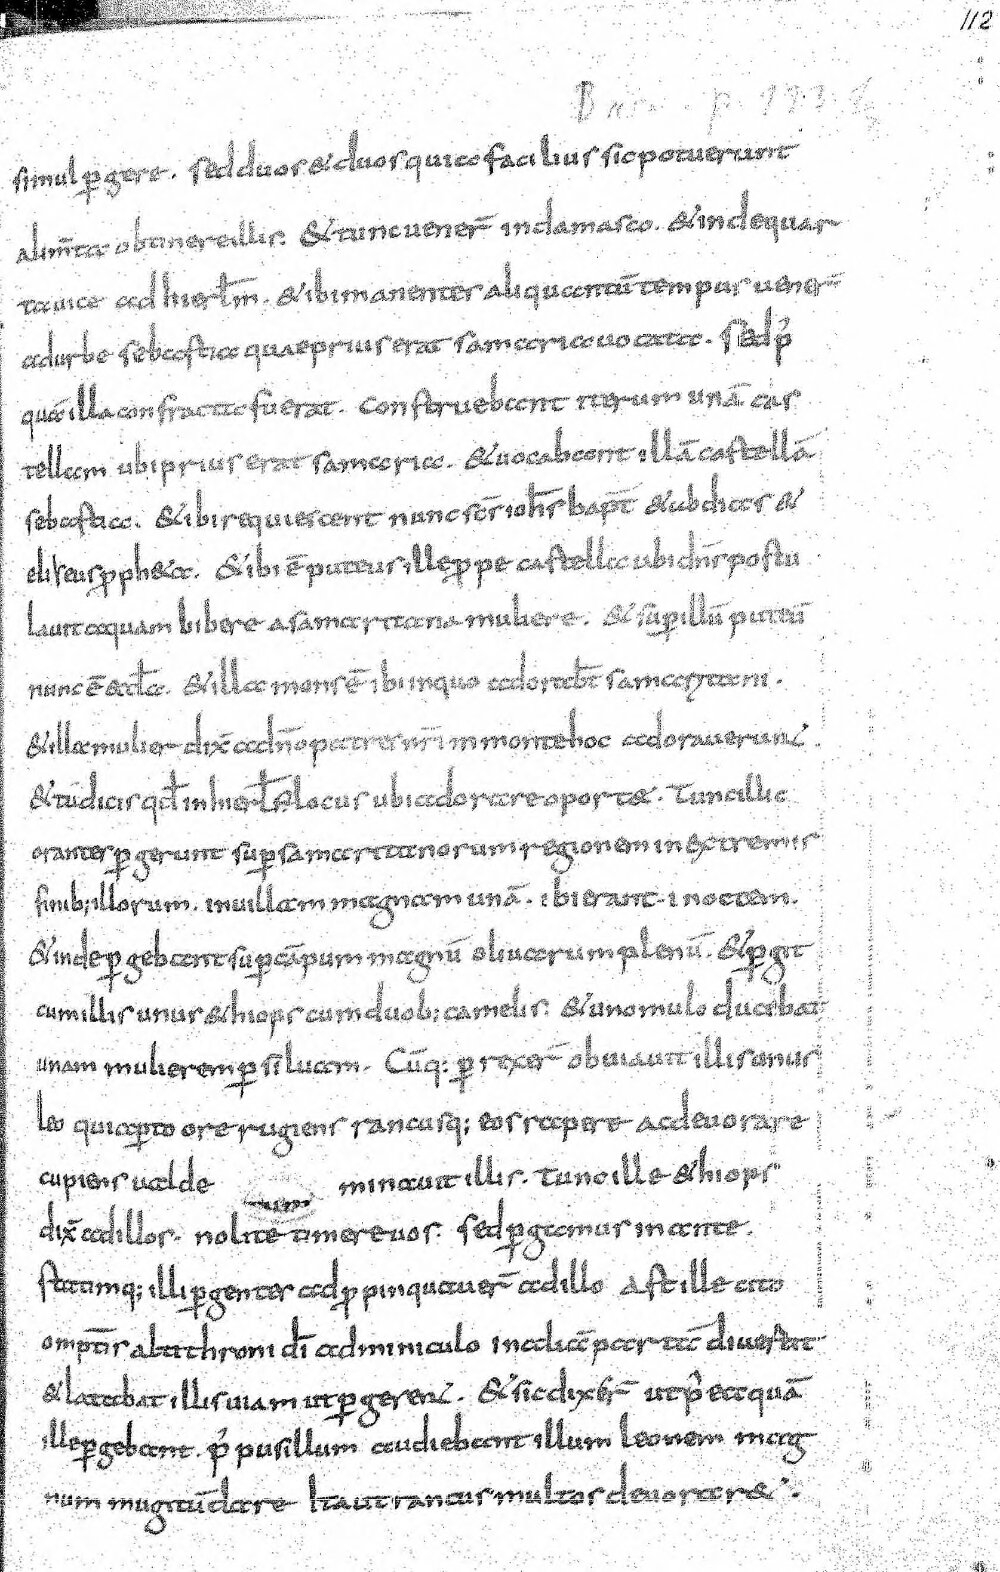 112
simul ꝑgere. sed duos & duos qui cco facilius sic potuerunt
alim̄ta obtinere illis. & tunc uener̄ in damasco. & inde quar
ta uice ad hierl̄m. & ibi manentes aliquantū tempus uener̄
ad urbe sebastia quae prius erat samaria uocata. sed p̾
quā illa confracta fuerat. construebant iterum unā cas
tellam ubi prius erat samaria. & uocabant illā castellā
sebastia. & ibi requiescent nunc sc̄s ioh̄s bapt̄ & abdias &
eliseus ꝓph&a. & ibi ē puteus ille ꝓpe castella ubi dn̄s postu
lauit aquam bibere a samaritana muliere. & suꝑ illū puteū
nunc ē æcl̄a. & illa mons ē ibi in quo adorab̄t samaritani.
& illa mulier dix̄ ad dn̄o patres nr̄i in monte hoc adorauerunt.
& tu dicis qd̄ in hierl̄ ē locus ubi adorare oport&. Tunc illic
orantes ꝑgerunt suꝑ samaritanorum regionem in extremis
finib; illorum. in uillam magnam unā. ibi erant i noctem.
& inde ꝑgebant suꝑ cāpum magnū oliuarum plenū. & ꝑgit
cum illis unus &hiops cum duob; camelis. & uno mulo ducebat
unam mulierem ꝑ siluam. Cūq; ꝑrexer̄ obuiauit illis unus
leo qui aꝑto ore rugiens rancusq; eos rapere ac deuorare
cupiens ualde minauit illis. Tunc ille &hiops
dix̄ ad illos. nolite timere uos. sed ꝑgamus in ante.
statimq; illi ꝑgentes adꝓpinquauer̄ ad illo ast ille cito
omp̄tis altithroni dī adminiculo in aliā partā diuertit
& latabat illis uiam ut ꝑgerent. & sic dixer̄ ut p̾ ea quā
ille ꝑgebant. p̾ pusillum audiebant illum leonem mag
num mugitū dare ltaut rancus multos deuorar&.